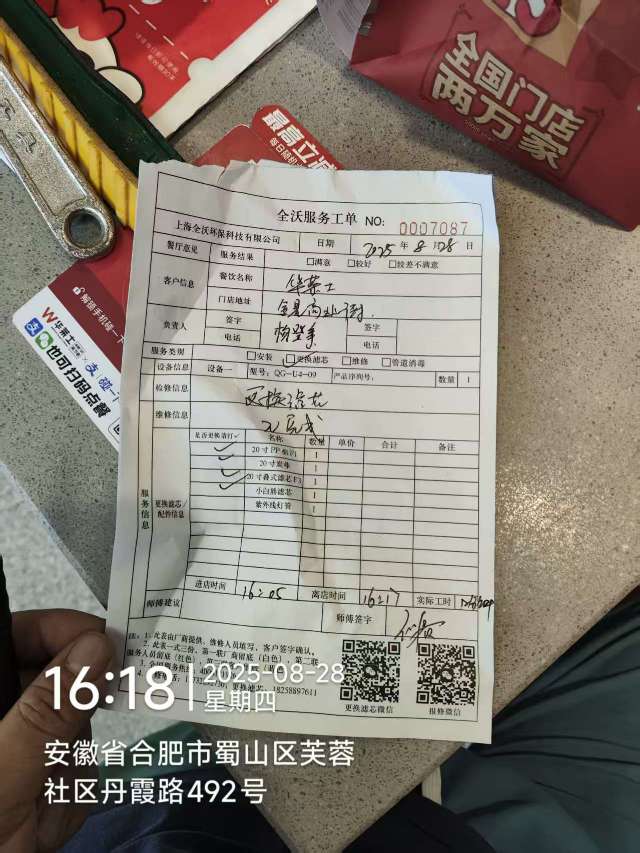 全国门店
两万家
最高立减
华莱士
支 碰一下
也可扫码点餐
全沃服务工单 NO: 0007087
上海全沃环保科技有限公司 日期 2025 年 8 月 28 日
餐厅意见 服务结果 □满意 □较好 □较差不满意
客户信息 餐饮名称 华莱士
门店地址
负责人 签字 签字
电话 电话
服务类别 □安装 □更换滤芯 □维修 □管道消毒
设备信息 设备一 型号: QG-U4-09 产品序列号: 数量 1
检修信息 更换滤芯
维修信息 已完成
服务信息 更换滤芯/配件信息 是否更换请打✓ 名称 数量 单价 合计 备注
20寸PP棉 1
20寸炭棒 1
20寸叠式滤芯 1
小白膜滤芯 1
紫外线灯管 1
进店时间 16:05 离店时间 16:17 实际工时
师傅建议 师傅签字
注: 1、此表由厂商提供、维修人员填写、客户签字确认。
2、此表一式三份、第一联厂商留底(白色)、第二联
服务人员留底(红色)、
更换滤芯: 18258897611
更换滤芯微信 报修微信
16:18 2025-08-28
星期四
安徽省合肥市蜀山区芙蓉
社区丹霞路492号